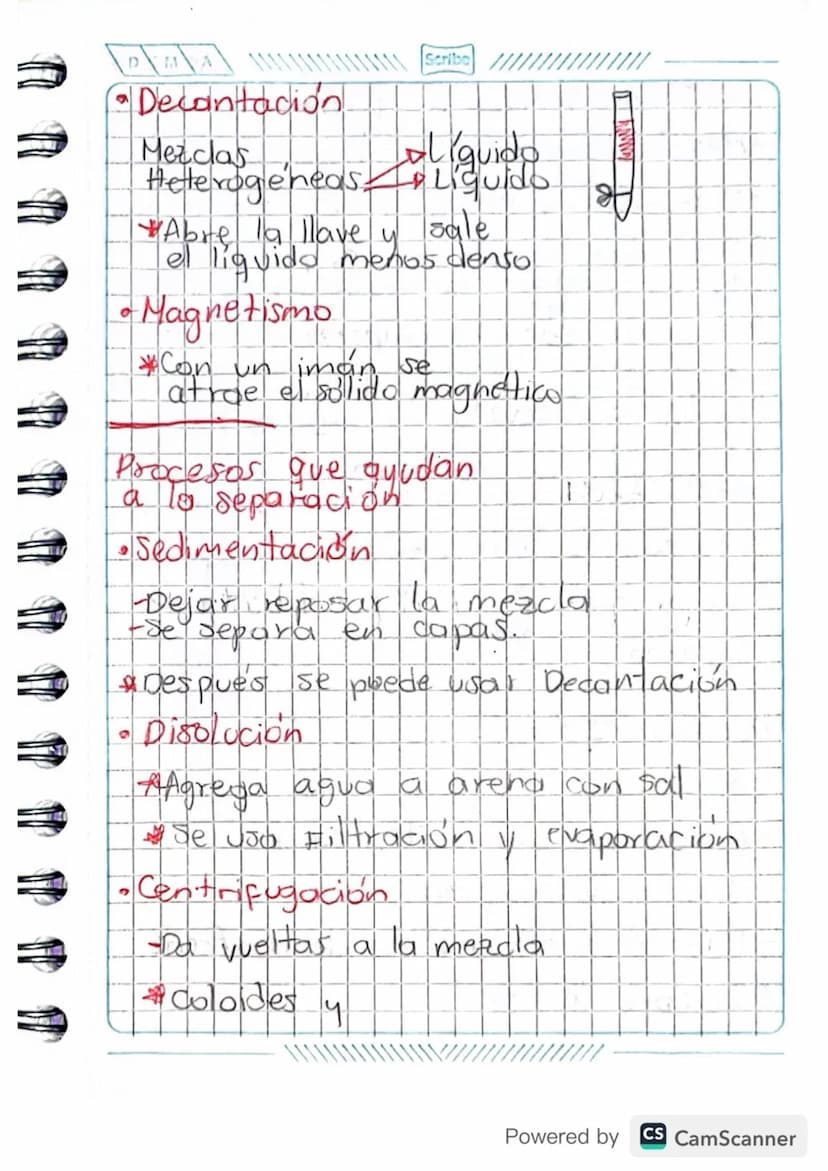 D M A
Scribe
• Decantación
Mezclas
Heterogéneas
Líquido
Líquido
*Abre la llave y sale
el líquido menos denso
• Magnetismo
*Con un imán se
atrae el sólido magnético
Procesos que ayudan
a la separación
• Sedimentación
-Dejar reposar la mezcla
-Se separa en capas.
*Después se puede usar Decantación
• Disolución
*Agrega agua a arena con sal
*Se usa Filtración y evaporación
• Centrifugación
-Da vueltas a la mezcla
*Coloides y
Powered by CS CamScanner